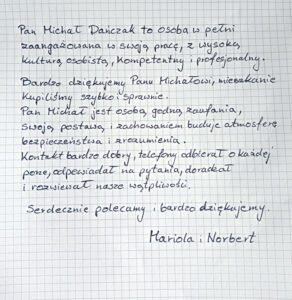 Pan Michał Dańczak to osoba w pełni
zaangażowana w swoją pracę, z wysoką
kulturą osobistą, kompetentny i profesjonalny.
Bardzo dziękujemy Panu Michałowi, mieszkanie
kupiliśmy szybko i sprawnie.
Pan Michał jest osobą godną zaufania,
swoją postawą i zachowaniem buduje atmosferę
bezpieczeństwa i zrozumienia.
Kontakt bardzo dobry, telefony odbierał o każdej
porze, odpowiadał na pytania, doradzał
i rozwiewał nasze wątpliwości.
Serdecznie polecamy i bardzo dziękujemy.
Mariola i Norbert